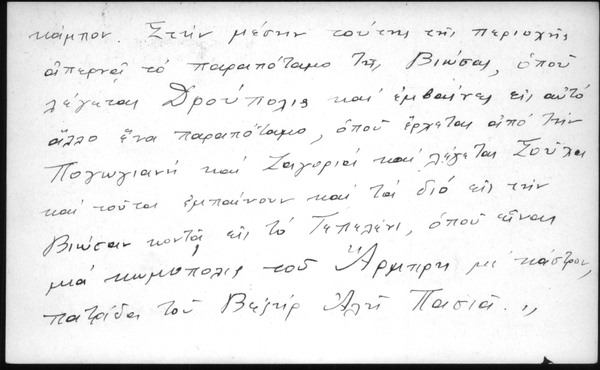 κάμπον. Στὴν μέσην τούτης τῆς περιοχῆς
ἀπερνᾷ τὸ παραπόταμο τῆς Βιώσας, ὁποῦ
λέγεται Δρούπολις καὶ ἐμβαίνει εἰς αὐτὸ
ἄλλο ἕνα παραπόταμο, ὁποῦ ἔρχεται ἀπὸ τὴν
Πογωγιανὴ καὶ Ζαγοριαὶ καὶ λέγεται Σοῦχα
καὶ τοῦτα ἐμπαίνουν καὶ τὰ διὸ εἰς τὴν
Βιώσαν κοντὰ εἰς τὸ Τεπελένι, ὁποῦ εἶναι
μιὰ κωμόπολις τοῦ Ἄρμπρη μὲ κάστρον,
πατρίδα τοῦ Βεζὴρ Ἀλῆ Πασιᾶ.,,